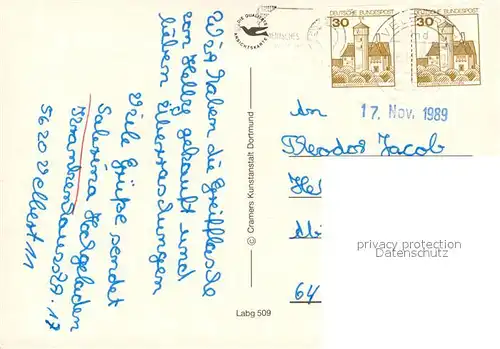 Wir haben die Greiflasche
von Hellig gekauft und
lieben Überraschungen
Viele Grüße sendet
Salesina Hodgeladen
Krankenhausstr. 17
5620 Velbert 11
DIE QUALITÄTS
ANSICHTSKARTE
© Cramers Kunstanstalt Dortmund
Labg 509
DEUTSCHE BUNDESPOST
30
DEUTSCHE BUNDESPOST
30
VELBERT
17. Nov. 1989
An
Theodor Jacob
privacy protection
Datenschutz
64